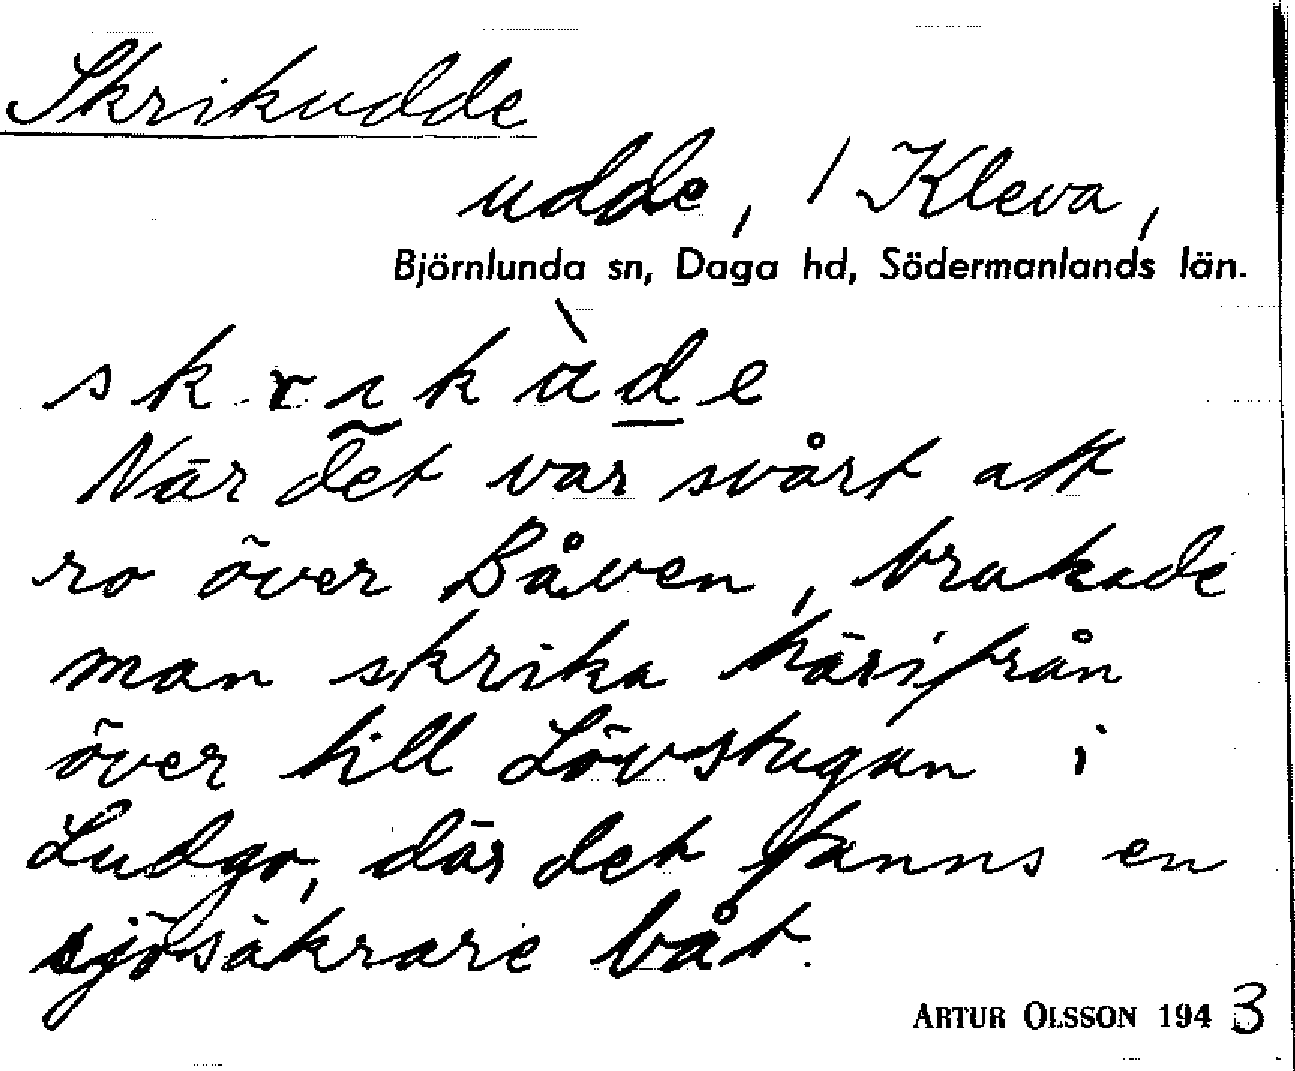 Skrikudde
udde, / Kleva,
Björnlunda sn, Daga hd, Södermanlands län.
När det var svårt att
ro över Båven, brukade
man skrika härifrån
över till Lövstugan i
Ludgo, där det fanns en
sjösäkrare båt.
ARTUR OLSSON 1943